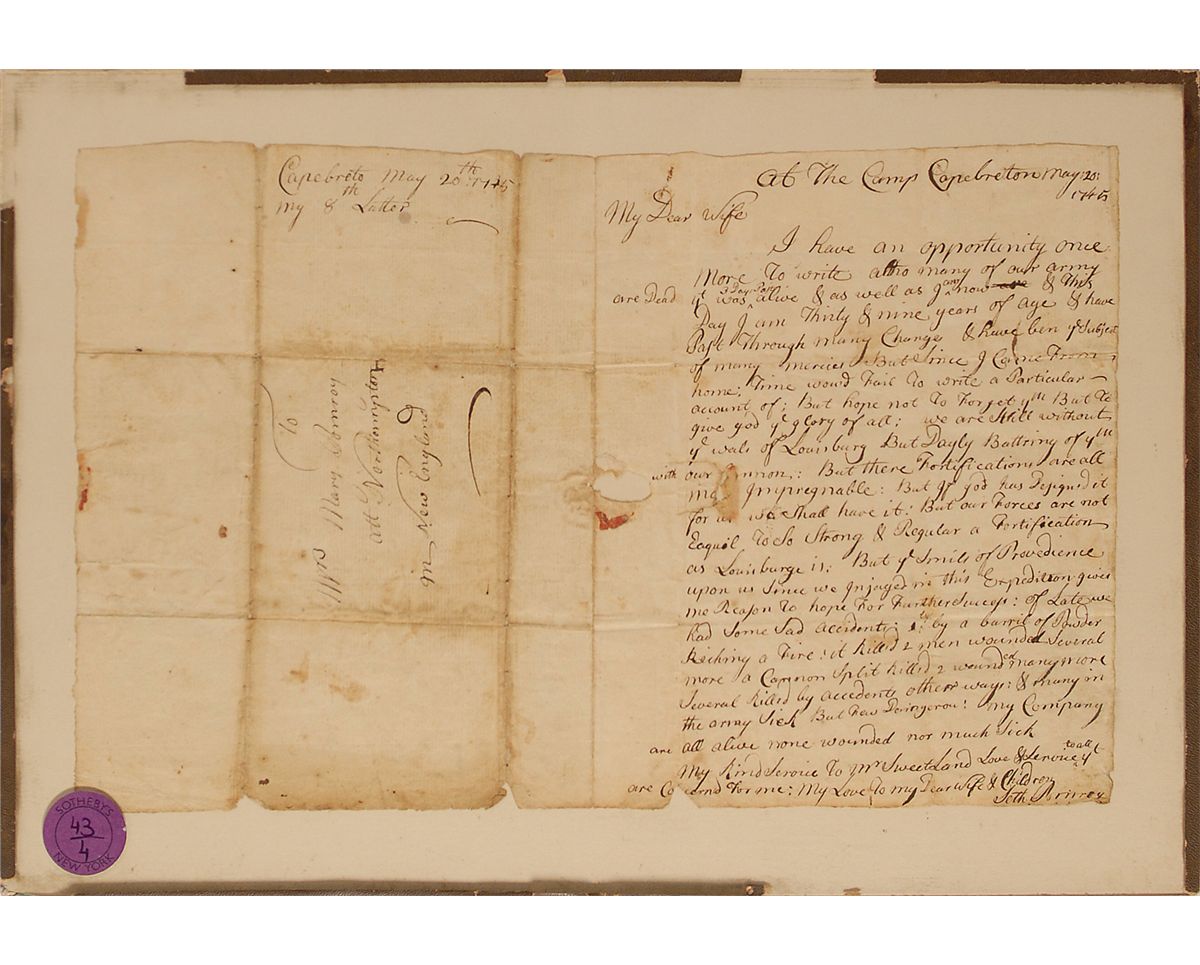 Capebreto May 20th: 1745
my 8th Lutter
To
Mrs Mary Pomroy
att Northampton
in New England
At The Camp Capebreton May: 20:
1745
My Dear Wife
I have an opportunity once
More To write altho many of our army
are Dead yt was 3 Days Past alive & as well as I am now & This
Day I am Thirty & nine years of age & have
Past Through many Changes & have ben ye Subject
of many mercies But Since I Came From
home; Time woud Fail To write a Particular
account of; But hope not To Forget ym But To
give god ye glory of all; we are Still without
ye wals of Louisburg But Dayly Battring of ym
with our Cannon: But there Fortifications are all
most Impregnable: But If god has Desigued it
for us we Shall have it: But our Forces are not
Eaquil To So Strong & Regular a Fortification
as Louisburge is: But ye Smils of Provedience
upon us Since we Injoyed in this Expedition gives
me Reason To hope For Further Success: of Late we
had Some Sad accidents; by a barril of Powder
Ketching a Fire: it Killd 2 men wounded Several
more a Cannon Split Killd 2 wounded many more
Several Killd by accedents other ways: & many in
the army Sick But Few Dringerou: my Company
are all alive none wounded nor much Sick
My Kind Service To Mr Sweetland Love & Service to all yt
are Concernd For me: My Love to my Dear Wife & Children
Seth Pomroy
SOTHEBY'S
43
4
NEW YORK